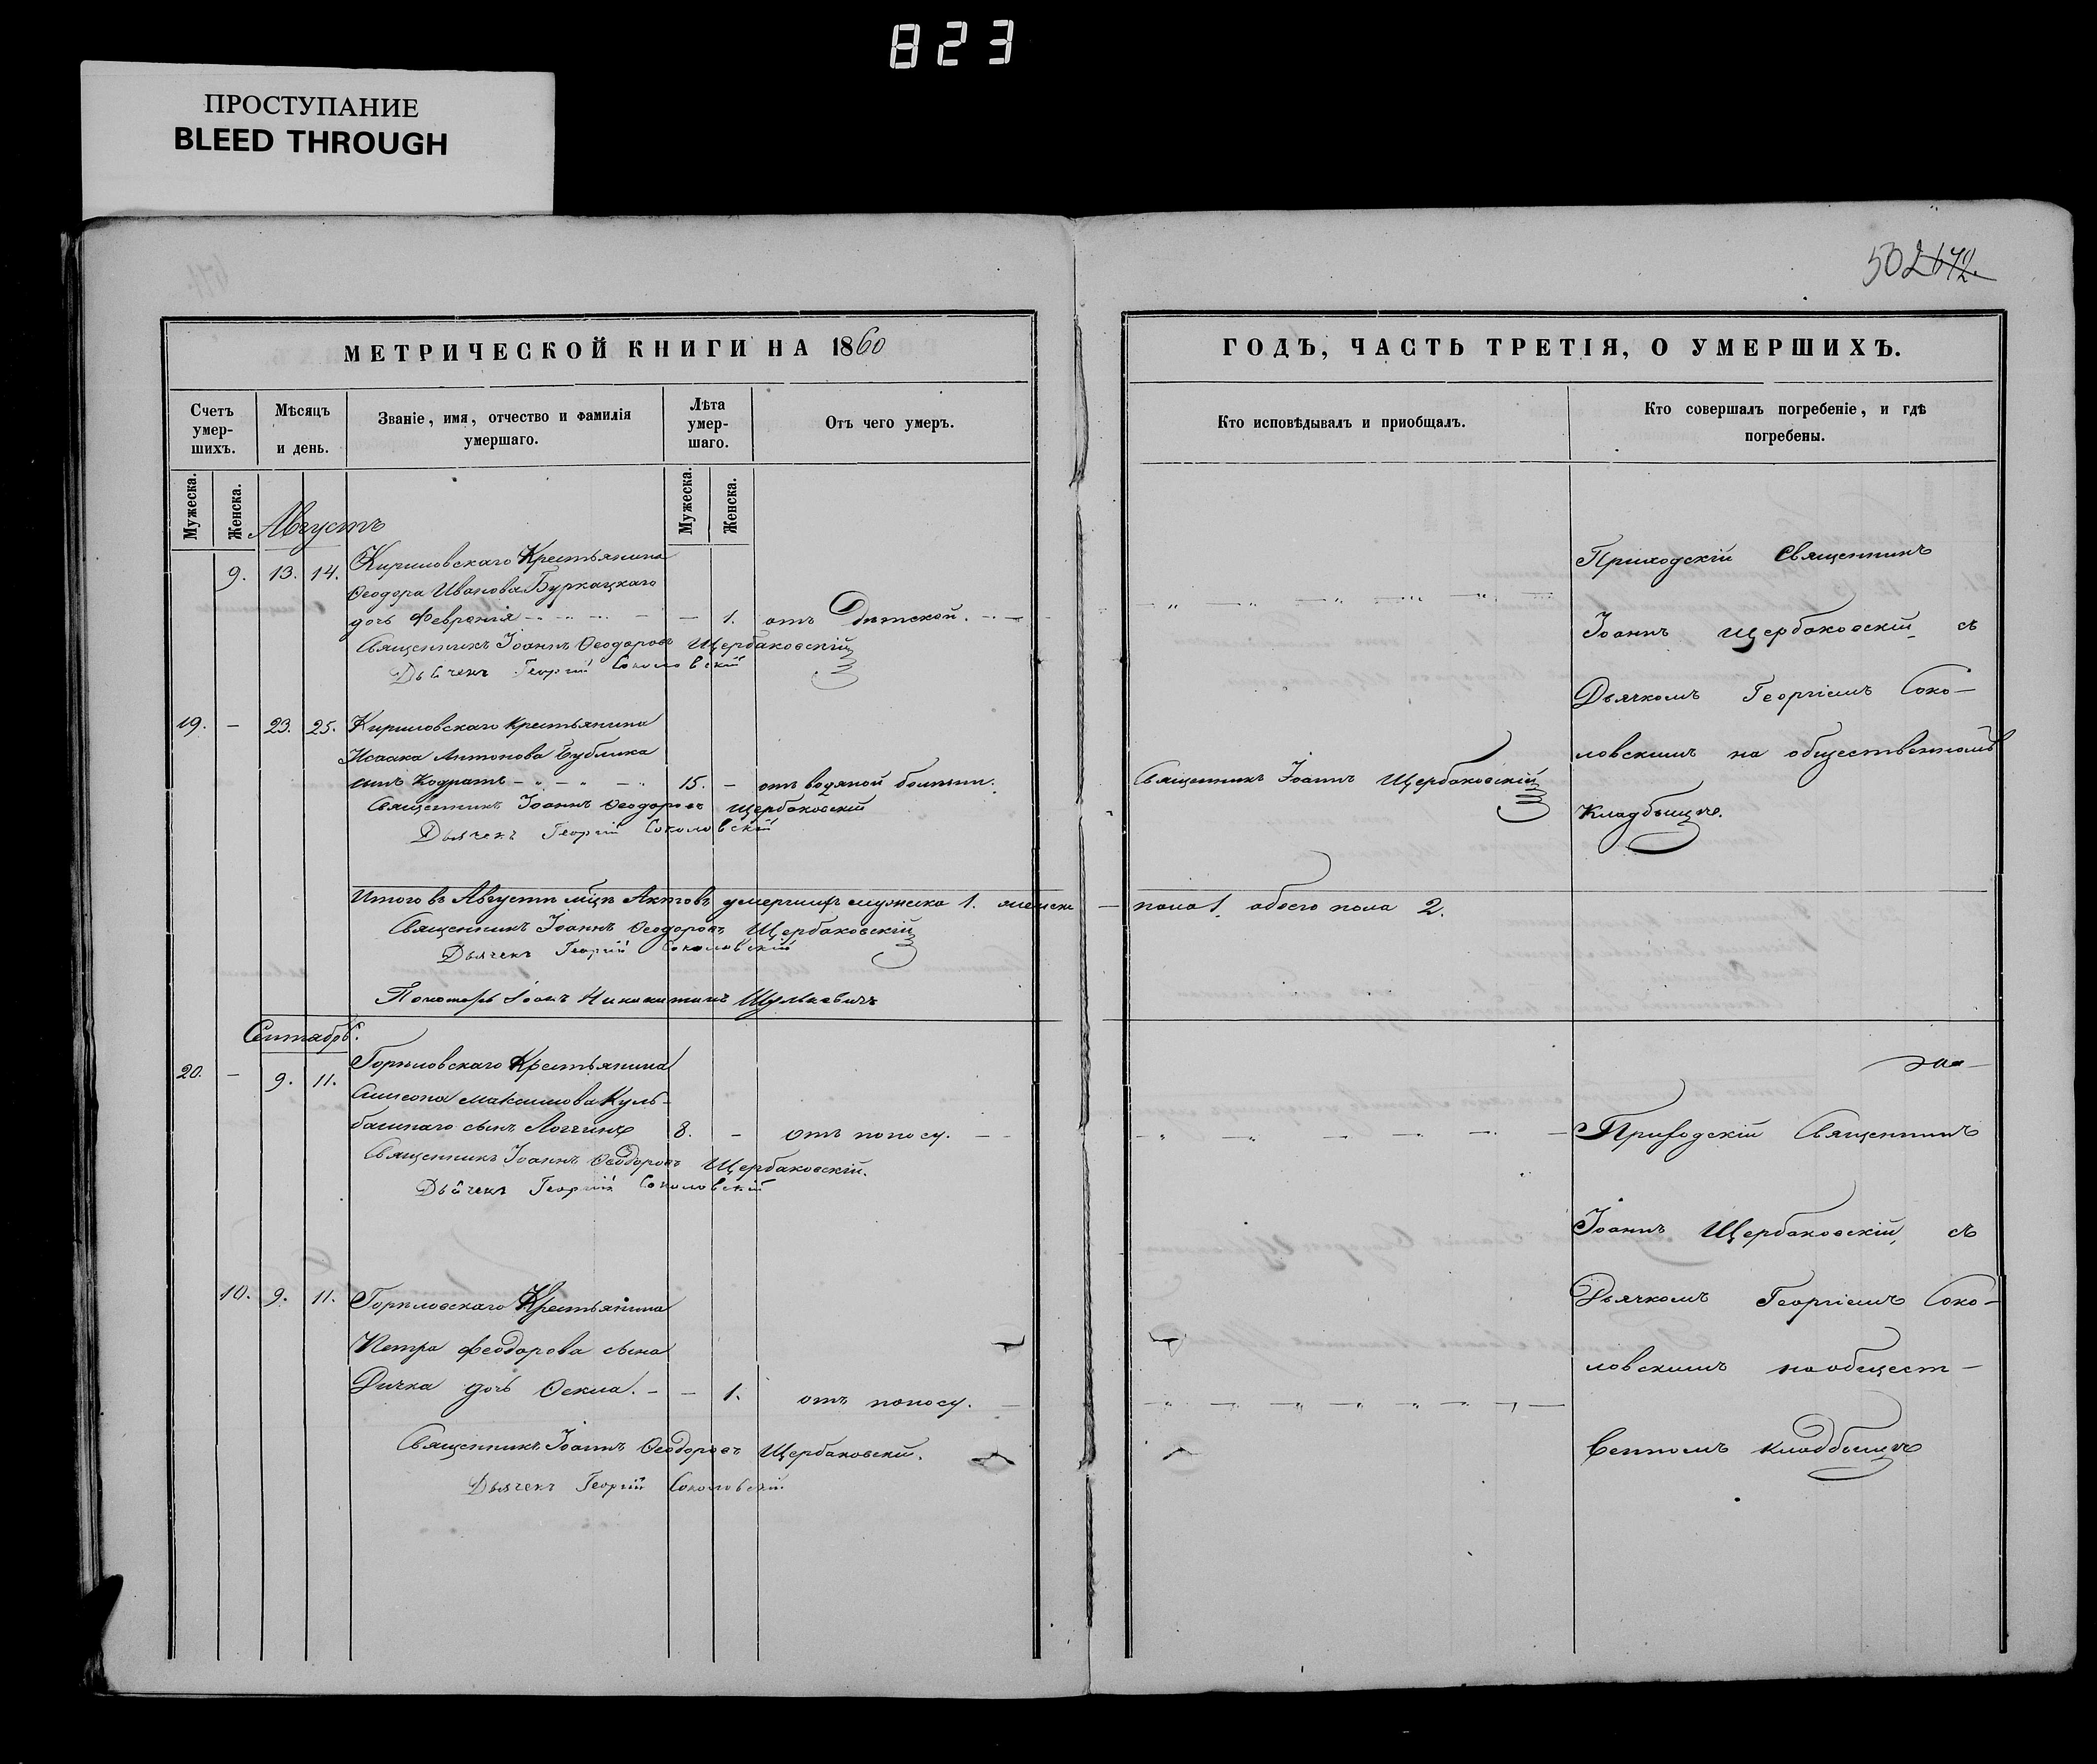 823
ПРОСТУПАНИЕ
BLEED THROUGH
502 672.
МЕТРИЧЕСКОЙ КНИГИ НА 1860
Счетъ умер-шихъ.
Мѣсяцъ и день.
Званіе, имя, отчество и фамилія умершаго.
Лѣта умер-шаго.
Отъ чего умеръ.
Мужеска.
Женска.
Мужеска.
Женска.
Августъ
9. 13. 14. Кириловскаго Крестьянина
Ѳеодора Иванова Буркацкаго
дочь Февронія - - 1. отъ Дѣтской.
Священникъ Іоаннъ Ѳеодоровъ Щербаковскій
Дьячекъ Георгій Соколовскій
19. - 23. 25. Кириловскаго Крестьянина
Исаака Антонова Бублика
сынъ Кодратъ - 15. - отъ водяной болѣзни.
Священникъ Іоаннъ Ѳеодоровъ Щербаковскій
Дьячекъ Георгій Соколовскій
Итого въ Августѣ мцѣ Актовъ умершихъ мужска 1. женска
Священникъ Іоаннъ Ѳеодоровъ Щербаковскій
Дьячекъ Георгій Соколовскій
Пономарь Шулькевичъ
Сентябрь.
20. - 9. 11. Гориловскаго Крестьянина
Симеона Максимова Куль-
башнаго сынъ Логгинъ 8. - отъ поносу.
Священникъ Іоаннъ Ѳеодоровъ Щербаковскій.
Дьячекъ Георгій Соколовскій
10. 9. 11. Гориловскаго Крестьянина
Петра Феодорова сына
Дичка дочь Ѳекла. - - 1. отъ поносу.
Священникъ Іоаннъ Ѳеодоровъ Щербаковскій.
Дьячекъ Георгій Соколовскій
ГОДЪ, ЧАСТЬ ТРЕТІЯ, О УМЕРШИХЪ.
Кто исповѣдывалъ и пріобщалъ.
Кто совершалъ погребеніе, и гдѣ погребены.
Приходскій Священникъ
Іоаннъ Щербаковскій съ
Дьячкомъ Георгіемъ Соко-
ловскимъ на общественномъ
Кладбищѣ.
Священникъ Іоаннъ Щербаковскій
пола 1. обоего пола 2.
Приходскій Священникъ
Іоаннъ Щербаковскій, съ
Дьячкомъ Георгіемъ Соко-
ловскимъ на общест-
венномъ кладбищѣ